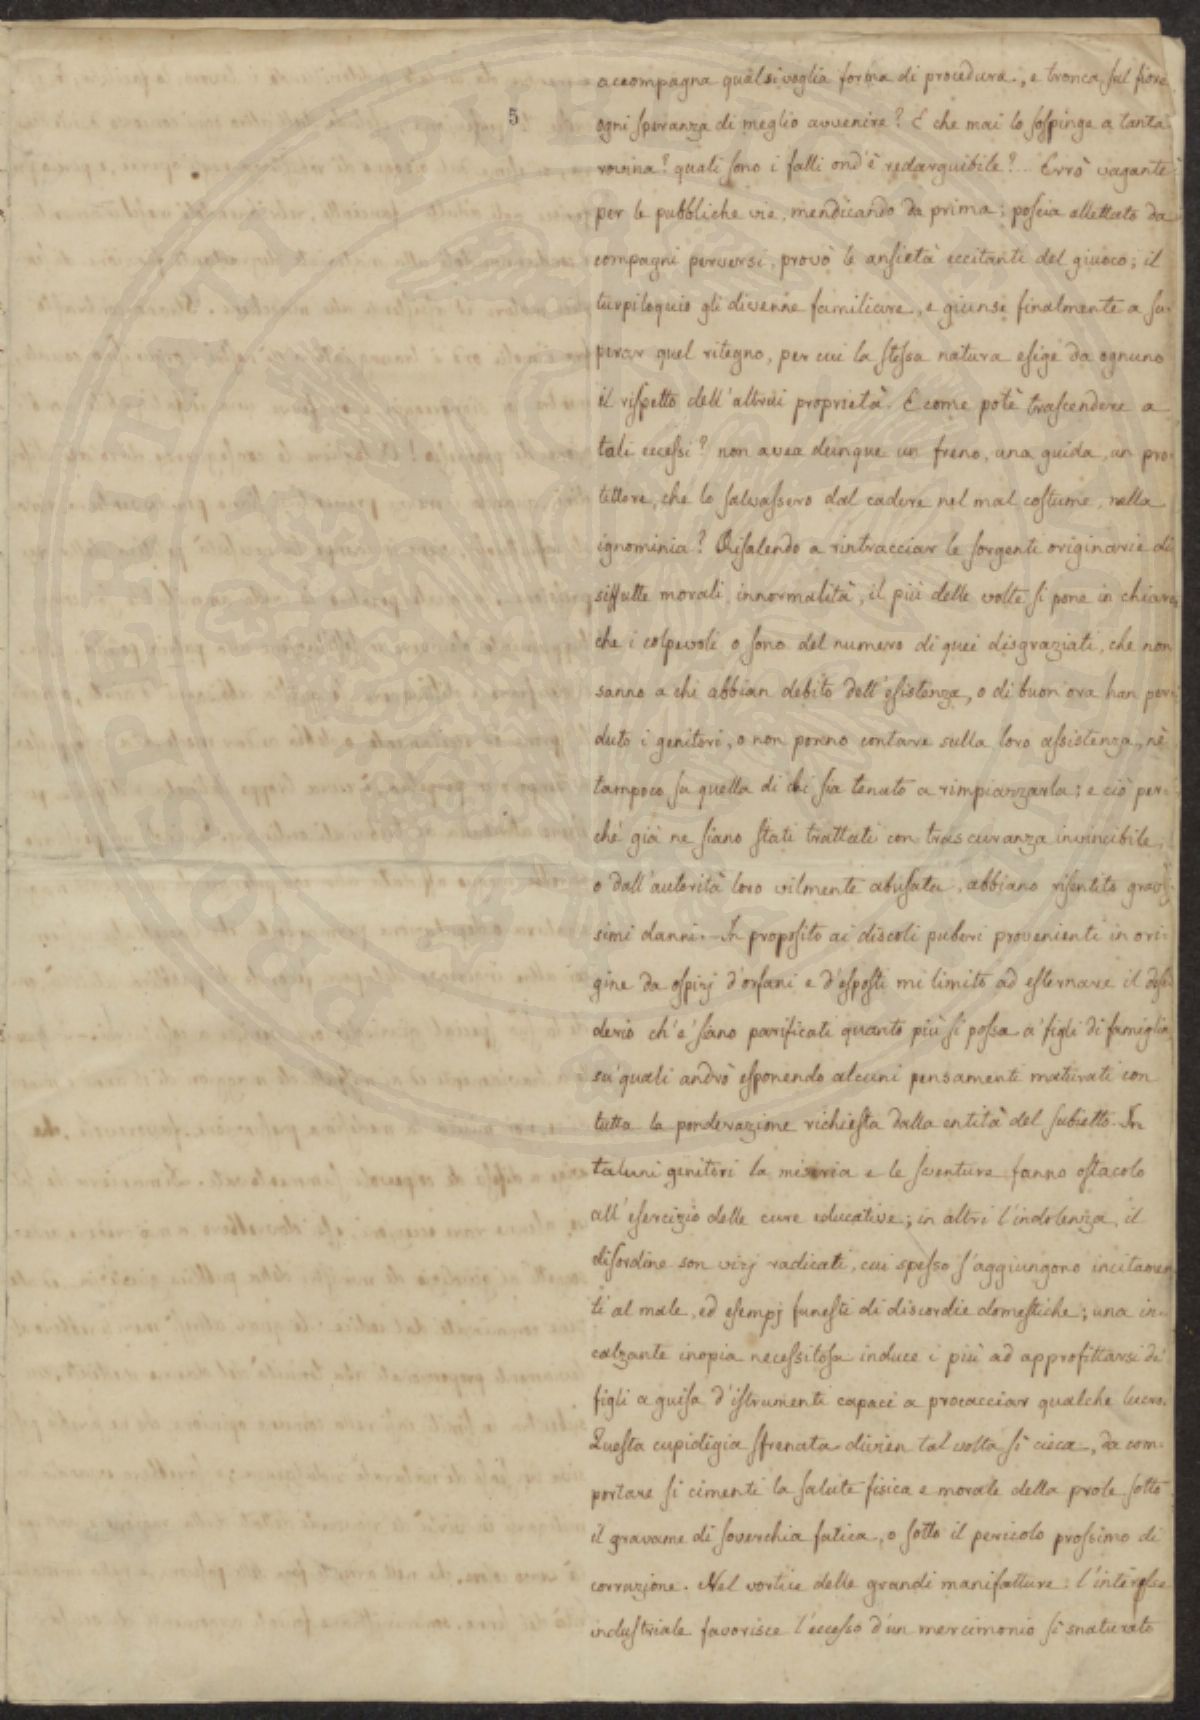 5
accompagna qualsivoglia forma di procedura, e tronca sul fiore
ogni speranza di meglio avvenire? E che mai lo sospinge a tanta
rovina? quali sono i falli ond'è redarguibile? .. Errò vagante
per le pubbliche vie, mendicando da prima; poscia allettato da
compagni perversi, provò le ansietà eccitanti del giuoco; il
turpiloquio gli divenne familiare, e giunse finalmente a su-
perar quel ritegno, per cui la stessa natura esige da ognuno
il rispetto dell'altrui proprietà. E come potè trascendere a
tali eccessi? non avea dunque un freno, una guida, un pro-
tettore, che lo salvassero dal cadere nel mal costume, nella
ignominia? Risalendo a rintracciar le sorgenti originarie di
siffatte morali innormalità, il più delle volte si pone in chiaro,
che i colpevoli o sono del numero di quei disgraziati, che non
sanno a chi abbian debito dell'esistenza, o di buon'ora han per-
duto i genitori, o non ponno contare sulla loro assistenza, nè
tampoco su quella di chi sia tenuto a rimpiazzarla; e ciò per-
chè già ne siano stati trattati con trascuranza invincibile,
o dall'autorità loro vilmente abusata, abbiano risentito gravis-
simi danni. In proposito ai discoli puberi provenienti in ori-
gine da ospizj d'orfani e d'esposti mi limito ad esternare il desi-
derio ch'e' siano parificati quanto più si possa a' figli di famiglia
su' quali andrò esponendo alcuni pensamenti maturati con
tutta la ponderazione richiesta dalla entità del subietto. In
taluni genitori la miseria e le sventure fanno ostacolo
all'esercizio delle cure educative; in altri l'indolenza, il
disordine son vizj radicati, cui spesso s'aggiungono incitamen
ti al male, ed esempj funesti di discordie domestiche; una in-
calzante inopia necessitosa induce i più ad approfittarsi de'
figli a guisa d'istrumenti capaci a procacciar qualche lucro.
Questa cupidigia sfrenata divien tal volta sì cieca, da com-
portare si cimenti la salute fisica e morale della prole sotto
il gravame di soverchia fatica, o sotto il pericolo prossimo di
corruzione. Nel vortice delle grandi manifatture l'interesse
industriale favorisce l'eccesso d'un mercimonio sì snaturato